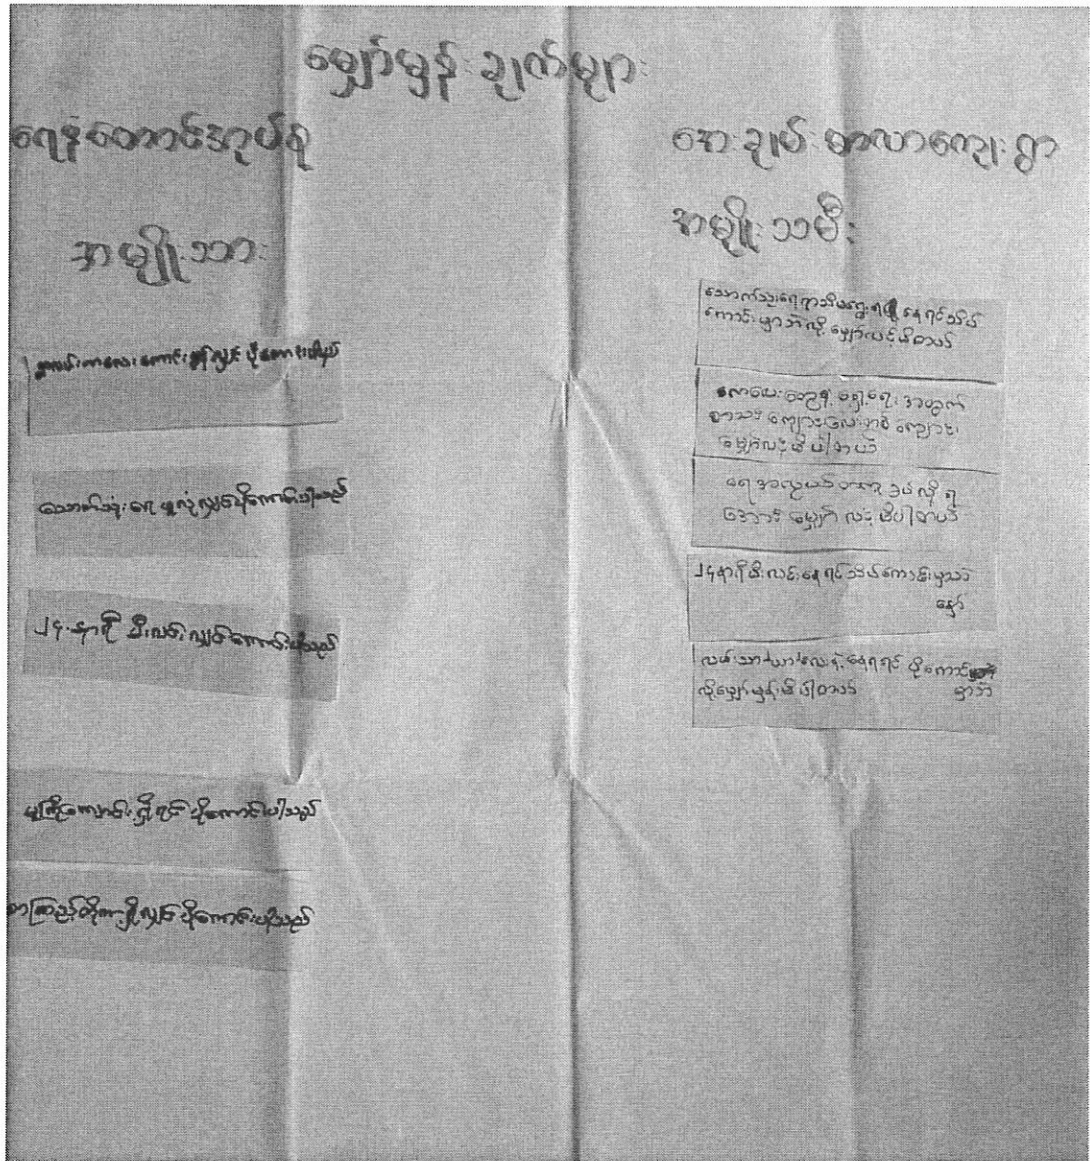 မျှော်မှန်းချက်များ
ရေနံတောင်အုပ်စု
အမျိုးသား
လမ်းတလေးကောင်းလျှင် ပိုကောင်းပါမည်
သောက်သုံးရေ ဖူလုံလျှင်ပိုကောင်းပါမည်
၂၄ နာရီ မီးလင်းလျှင်ကောင်းပါမည်
မူကြိုကျောင်းရှိရင် ပိုကောင်းပါသည်
စာကြည့်တိုက်ရှိလျှင် ပိုကောင်းပါမည်
အေးချမ်းသာယာကျေးရွာ
အမျိုးသမီး
သောက်သုံးရေ နေရင်သိပ်
ကောင်းမှာဘဲလို့ မျှော်လင့်မိတယ်
ကလေးတွေရဲ့ ရှေ့ရေးအတွက်
စာသင်ကျောင်းလေးတစ်ကျောင်း
မျှော်လင့်မိပါတယ်
ရေအလွယ်တကူ
အောင် မျှော်လင့်မိပါတယ်
၂၄နာရီမီးလင်းနေရင်သိပ်ကောင်းမှာဘဲ
နော်
လမ်းသာယာလေးနဲ့နေရရင် ပိုကောင်း
လို့မျှော်မှန်းမိပါတယ် မှာဘဲ